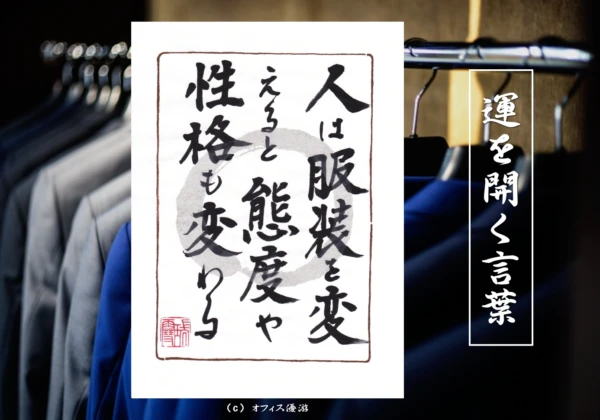 人は服装を変
えると態度や
性格も変わる
運を開く言葉
(C) オフィス優游